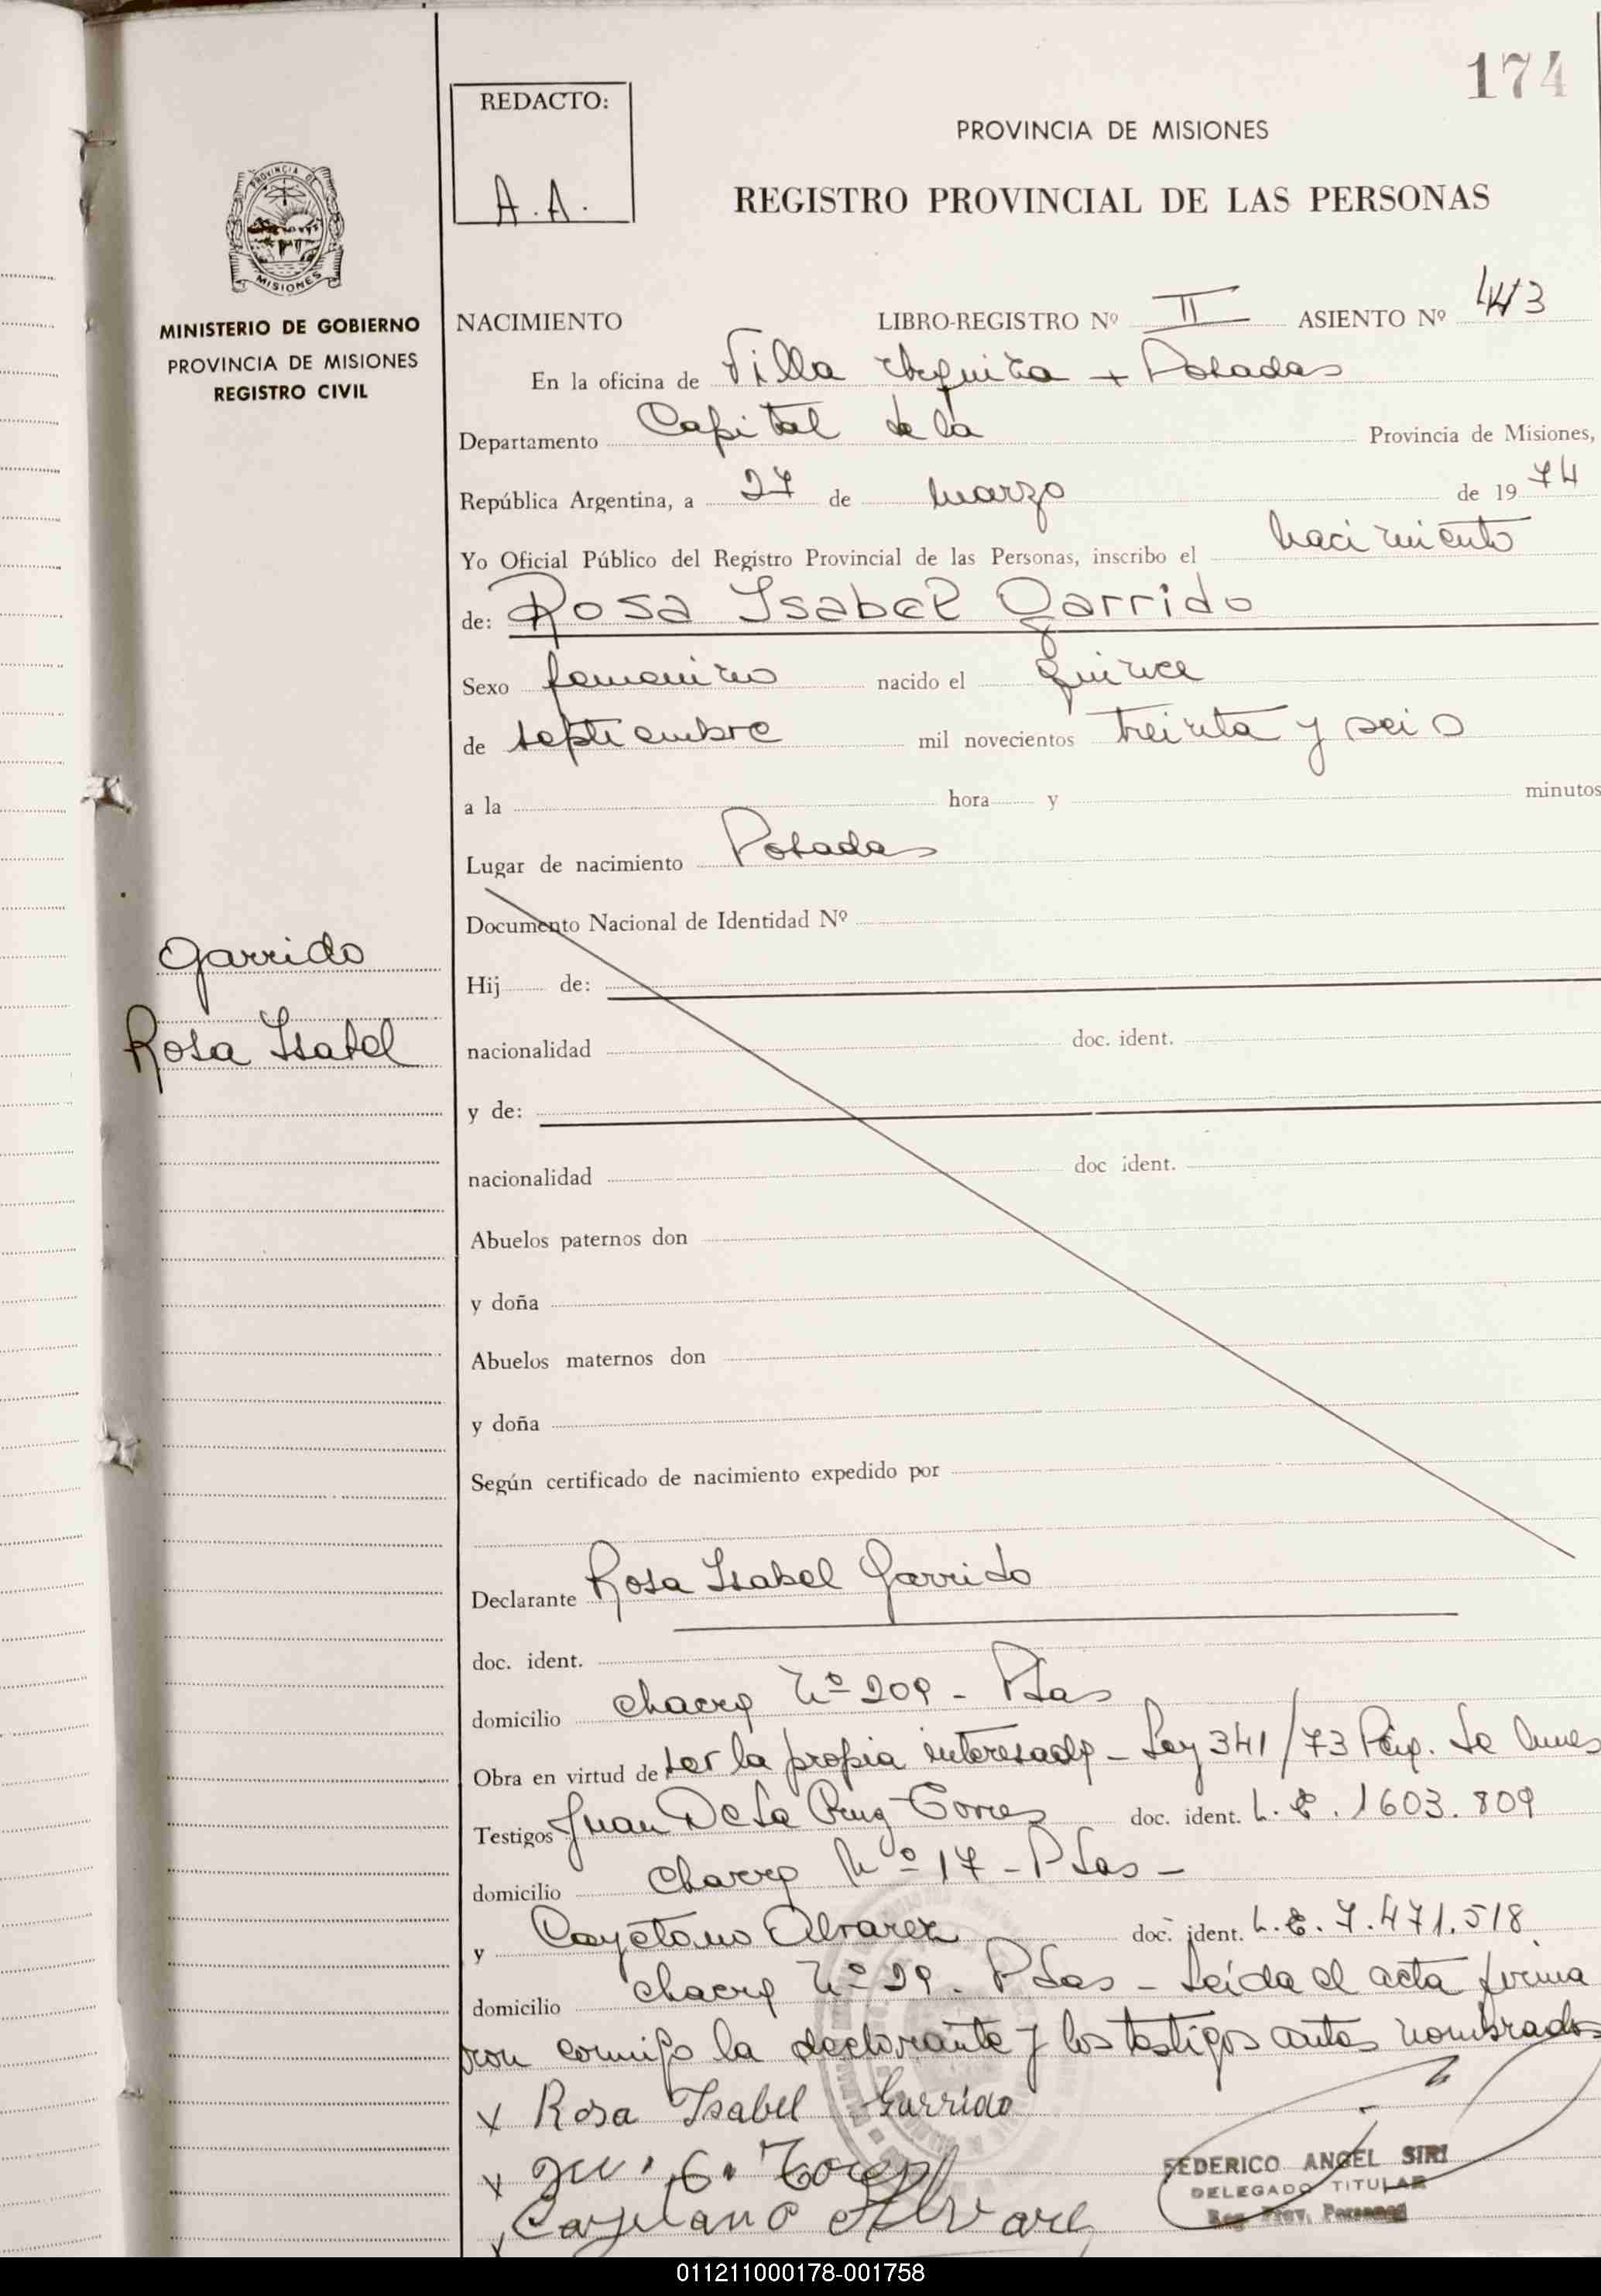 174
REDACTO:
A.A.
PROVINCIA DE MISIONES
REGISTRO PROVINCIAL DE LAS PERSONAS
PROVINCIA DE
MISIONES
MINISTERIO DE GOBIERNO
PROVINCIA DE MISIONES
REGISTRO CIVIL
NACIMIENTO LIBRO-REGISTRO Nº II ASIENTO Nº 443
En la oficina de Villa Urquiza - Posadas
Departamento Capital de la Provincia de Misiones,
República Argentina, a 27 de marzo de 1974
Yo Oficial Público del Registro Provincial de las Personas, inscribo el nacimiento
de: Rosa Isabel Garrido
Sexo femenino nacido el quince
de septiembre mil novecientos treinta y seis
a la hora y minutos
Lugar de nacimiento Posadas
Documento Nacional de Identidad Nº
Garrido
Rosa Isabel
Hij de:
nacionalidad doc. ident.
y de:
nacionalidad doc ident.
Abuelos paternos don
y doña
Abuelos maternos don
y doña
Según certificado de nacimiento expedido por
Declarante Rosa Isabel Garrido
doc. ident.
domicilio chacra Nº 209 - Pdas
Obra en virtud de ser la propia interesada - Ley 341/73
Testigos Juan De La Cruz Torres doc. ident. L.E. 1603.809
domicilio chacra Nº 17 - Pdas -
y Cayetano Alvarez doc. ident. L.E. 7.471.518
domicilio chacra Nº 29. Pdas - Leída el acta firma
ron conmigo la declarante y los testigos antes nombrados
x Rosa Isabel Garrido
x
Cayetano Alvare
FEDERICO ANGEL SIRI
DELEGADO TITULAR
Reg. Prov. Personas
011211000178-001758